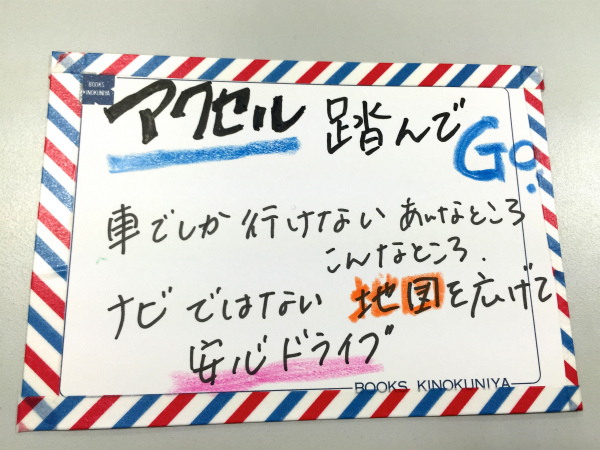 BOOKS
KINOKUNIYA
アクセル 踏んで
Go!
車でしか行けない あんなところ
こんなところ.
ナビではない 地図を広げて
安心ドライブ
BOOKS KINOKUNIYA